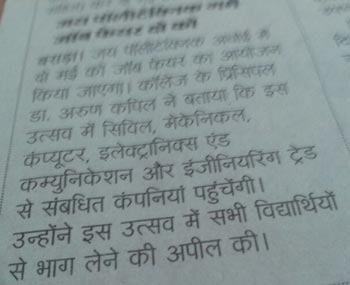 जय पॉलीटेक्निक में
जॉब फेयर दो को
बराड़ा। जय पॉलीटेक्निक में
दो मई को जॉब फेयर का आयोजन
किया जाएगा। कॉलेज के प्रिंसिपल
डा. अरुण कपिल ने बताया कि इस
उत्सव में सिविल, मेकेनिकल,
कंप्यूटर, इलेक्ट्रानिक्स एंड
कम्युनिकेशन और इंजीनियरिंग ट्रेड
से संबधित कंपनियां पहुंचेंगी।
उन्होंने इस उत्सव में सभी विद्यार्थियों
से भाग लेने की अपील की।